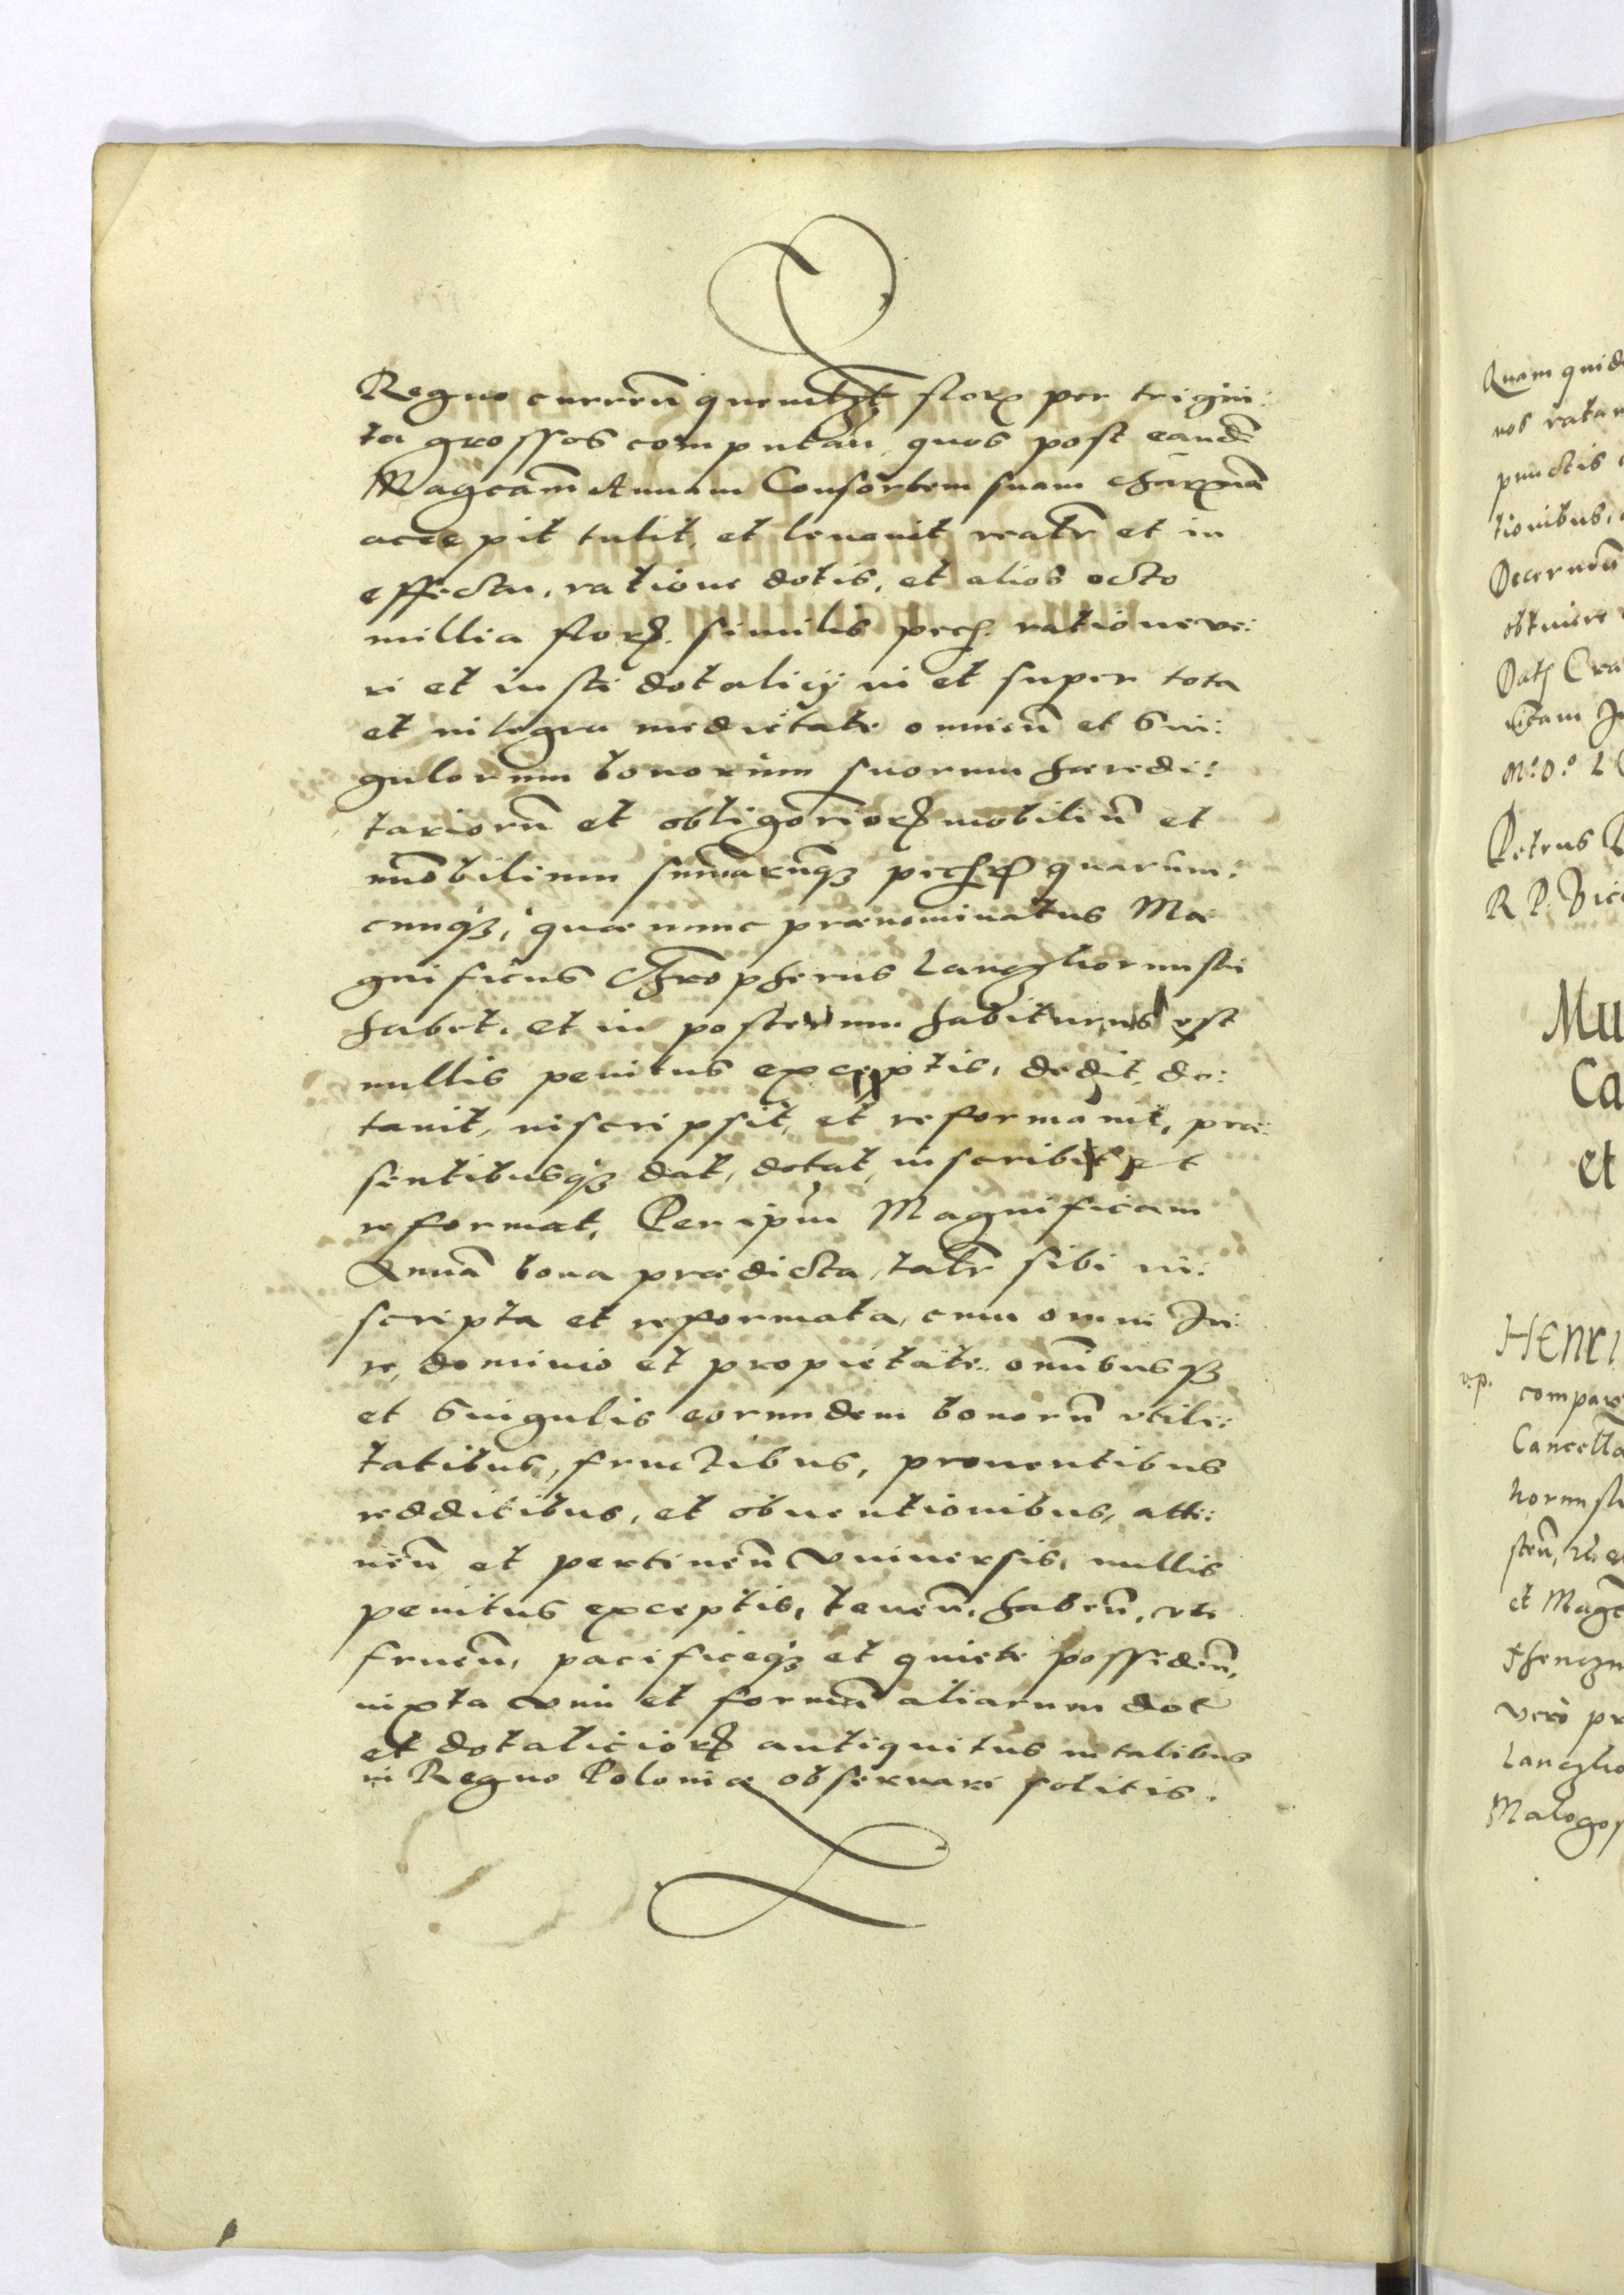 Regno curren̄ quemlt̄ florꝝ per trigin:
ta grossos computan̄, quos post eandē
Magcam̄ Annam Consortem suam charr̄mā
accepit tulit, et leuauit realr̄ et in
effectu, ratione dotis, et alios octo
millia florꝝ. similis pecꝭ. ratione ve:
ri et iusti dotalicij in et super tota
et integra medietate omniū et Sin:
gulorum bonorum suorum hæredi:
tariorū et obligatoriorꝝ mobiliū et
imōbilium sum̄arūqꝫ pecꝭrꝝ quarum:
cunqꝫ, quæ nunc prænominatus Ma
gnificus Chrophorus Lanczkorunski
habet, et in posterum habiturus est
nullis penitus exceptis, dedit, do:
tauit, inscripsit, et reformauit, præ:
sentibusqꝫ dat, dotat, inscribit, et
reformat, Per ipām Magnificam
Annā bona prædicta, talr̄ sibi in:
scripta et reformata, cum omni Ju
re, dominio et proprietate, omībusqꝫ
et Singulis eorundem bonorū vtili:
tatibus, fructibus, prouentibus
redditibus, et obuentionibus, atti:
nēn et pertinēn Vniuersis, nullis
penitus exceptis, tenēn, habēn, vti
fruēn, pacificeqꝫ et quiete possidēn,
iuxta vim et formā aliarum dot
et dotaliciorꝝ antiquitus in talibus
in Regno Poloniæ obseruari solitis.
Quam quid
nos ratam
punctis
tionibus,
Decernēn
obtinere
Datꝭ Cra
Petrus
R P. Vice
Mu
Ca
et
HEnri
v.p.
compar
Cancella
et Magc̄
vero pr
Lanczko
Malogos